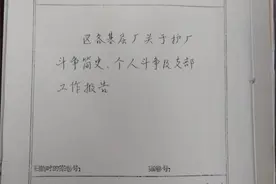 区各基层厂关于护厂
斗争简史、个人斗争及支部
工作报告